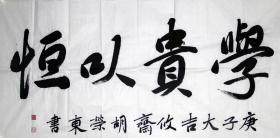 學貴以恒
庚子大吉攸齋胡榮東書